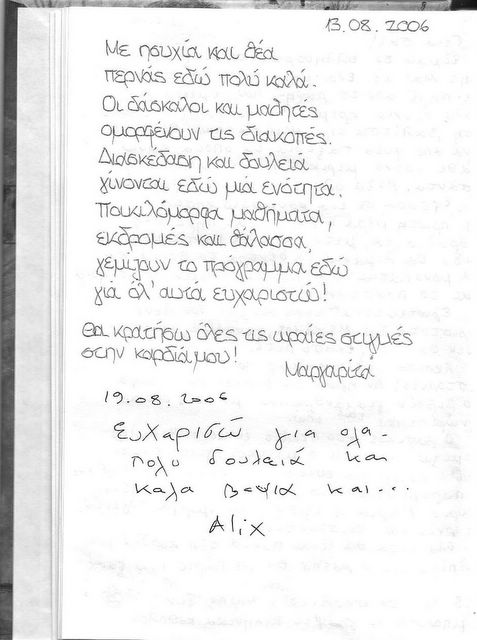 13.08.2006
Με ησυχία και θέα
περνάς εδώ πολύ καλά.
Οι δάσκαλοι και μαθητές
ομορφένουν τις διακοπές.
Διασκέδαση και δουλειά
γίνονται εδώ μιά ενότητα.
Ποικιλόμορφα μαθήματα,
εκδρομές και θάλασσα,
γεμίζουν το πρόγραμμα εδώ
γιά όλ'αυτά ευχαριστώ!
Θα κρατήσω όλες τις ωραίες στιγμές
στην καρδιά μου!
Μαργαρίτα
19.08.2006
Ευχαριστώ για ολα.
πολυ δουλειά και
καλα και...
Alix